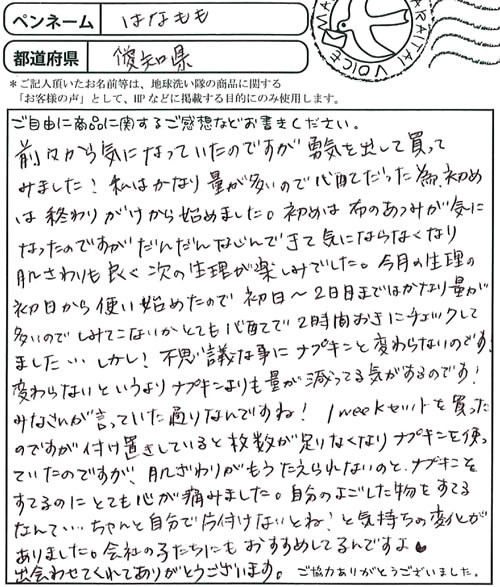 ペンネーム はなもも
都道府県 愛知県
MA ARAITAI VOICE
*ご記入頂いたお名前等は、地球洗い隊の商品に関する
「お客様の声」として、HPなどに掲載する目的にのみ使用します。
ご自由に商品に関するご感想などお書きください。
前々から気になっていたのですが勇気を出して買って
みました！私はかなり量が多いので心配だった為、初め
は終わりがけから始めました。初めは布のあつみが気に
なったのですがだんだんなじんできて気にならなくなり
肌さわりも良く次の生理が楽しみでした。今月の生理の
初日から使い始めたので初日〜2日目まではかなり量が
多いのでしみてこないかとても心配で2時間おきにチェックして
ました…しかし！不思議な事にナプキンと変わらないのです。
変わらないというよりナプキンよりも量が減ってる気がするのです！
みなさんが言っていた通りなんですね！1weekセットを買った
のですが付け置きしていると枚数が足りなくなりナプキンを使っ
ていたのですが、肌ざわりがもうたえられないのと、ナプキンを
すてるのにとても心が痛みました。自分のよごした物をすてる
なんて…ちゃんと自分で片付けないとね！と気持ちの変化が
ありました。会社の子たちにもおすすめしてるんですよ♥
出会わせてくれてありがとうございます。 ご協力ありがとうございました。